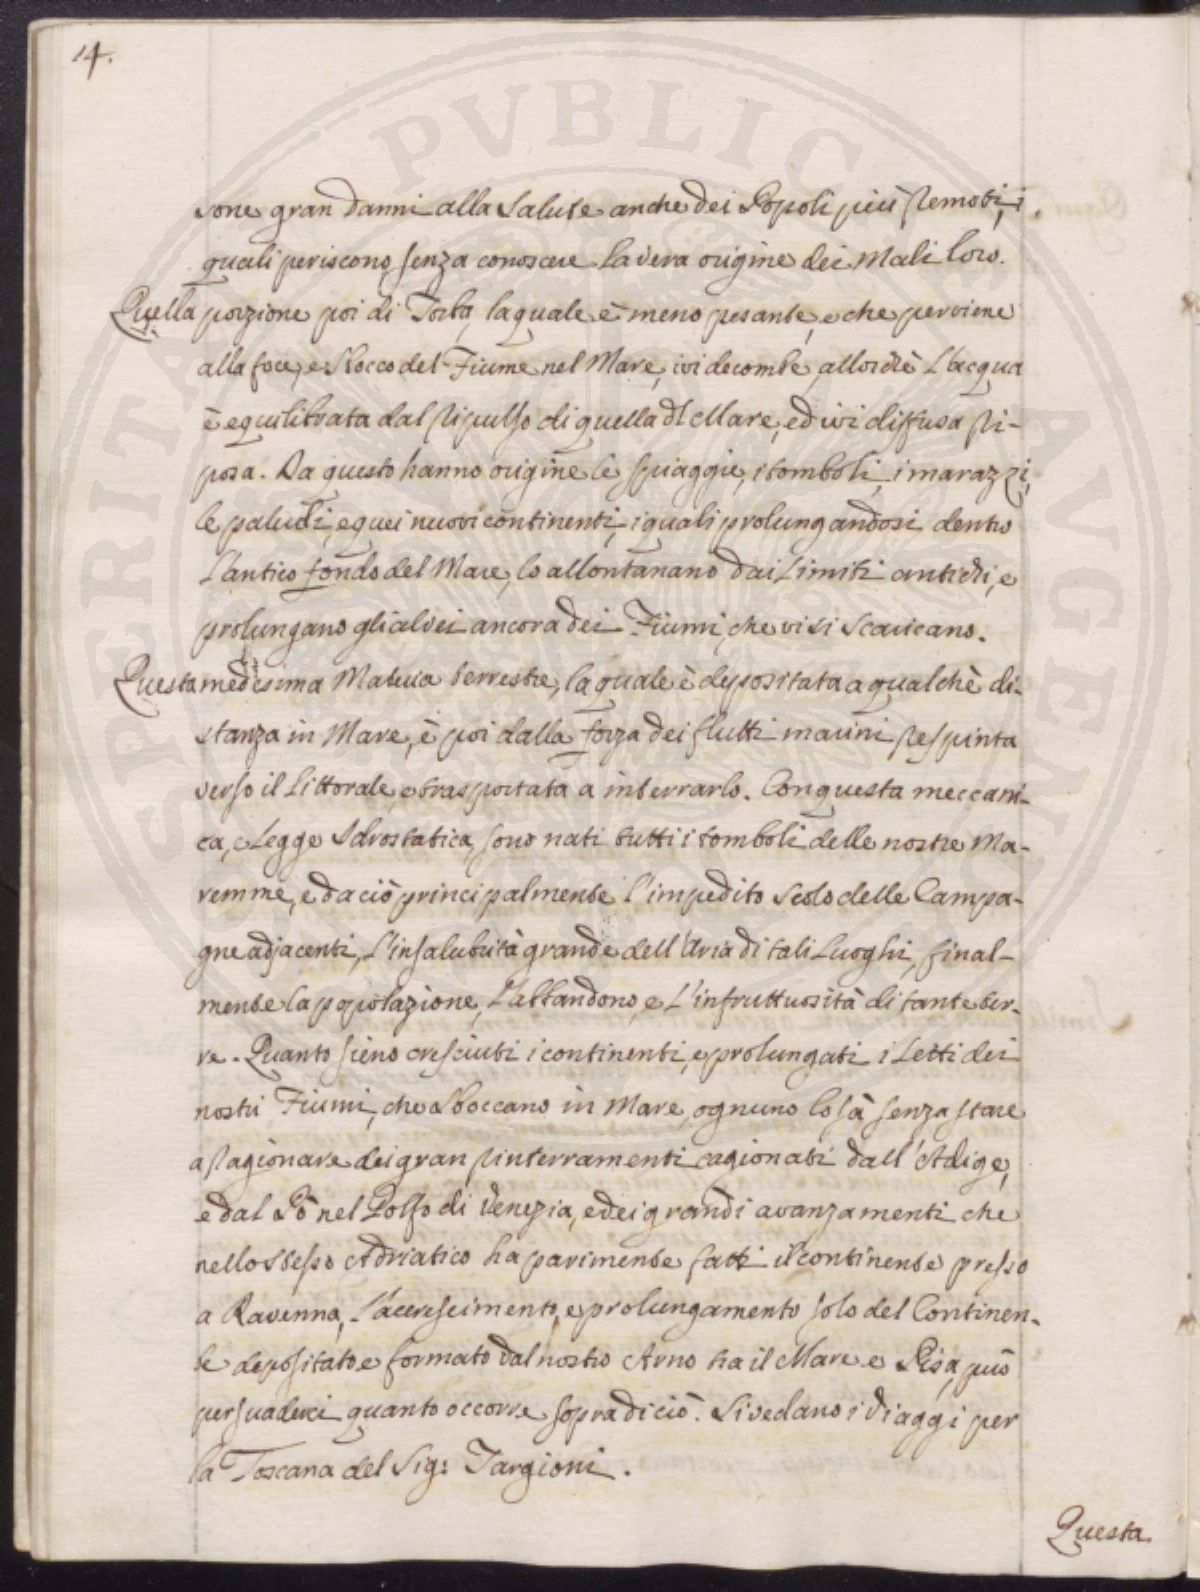 14.
sone gran danni alla Salute anche dei Popoli più remoti, i
quali periscono senza conoscere la vera origine dei Mali loro.
Quella porzione poi di Torba, la quale è meno pesante, e che perviene
alla foce, e Sbocco del Fiume nel Mare, ivi decombe, allorchè L'acqua
è equilibrata dal ripulso di quella dl Mare, ed ivi diffusa ri-
posa. Da questo hanno origine le spiaggie, i tomboli, i marazzi,
le paludi, e quei nuovi continenti, i quali prolungandosi dentro
L'antico fondo del Mare, lo allontanano dai Limiti antichi, e
prolungano gli alvei ancora dei Fiumi, che vi si scaricano.
Questa medesima Materia terrestre, la quale è depositata a qualchè di-
stanza in Mare, è poi dalla forza dei flutti marini respinta
verso il Littorale, e trasportata a interrarlo. Con questa meccani-
ca, e Legge Idrostatica, sono nati tutti i tomboli delle nostre Ma-
remme, e da ciò principalmente l'impedito scolo delle Campa-
gne adjacenti, L'insalubrità grande dell'Aria di tali Luoghi, final-
mente la popolazione, L'abbandono, e L'infruttuosità di tante ter-
re. Quanto sieno cresciuti i continenti, e prolungati i Letti dei
nostri Fiumi, che sboccano in Mare, ognuno lo sà senza stare
a ragionare dei gran rinterramenti cagionati dall'Adige,
e dal Pò nel Golfo di Venezia, e dei grandi avanzamenti che
nello stesso Adriatico ha parimente fatti il continente presso
a Ravenna, L'acerescimento, e prolungamento solo del Continen-
te depositato e formato dal nostro Arno tra il Mare e Pisa, può
persuaderci quanto occorre sopra di ciò. Si vedano i Viaggi per
la Toscana del Sig: Targioni.
Questa
PUBLICA
AUGENT